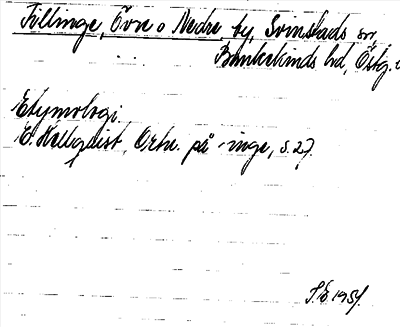 Tillinge, Övre o Nedre by, Svinstads sn,
Bankekinds hd, Östg.
Etymologi.
E. Hellquist, Ortn. på -inge, s. 27.